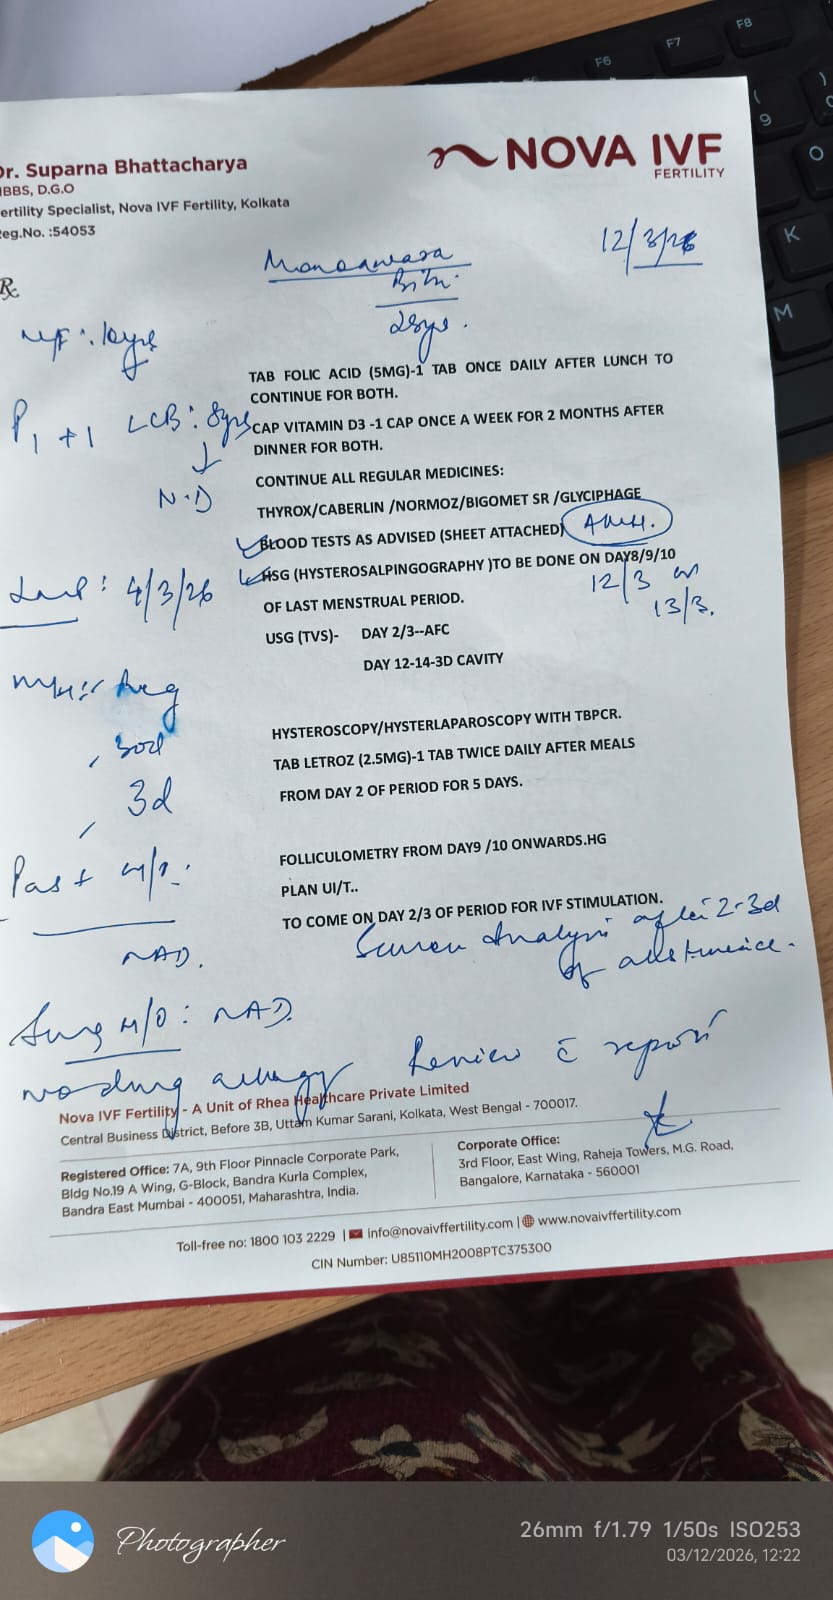 Dr. Suparna Bhattacharya
MBBS, D.G.O
Fertility Specialist, Nova IVF Fertility, Kolkata
Reg.No. :54053
NOVA IVF
FERTILITY
12/3/26
Rx
28yrs.
M/F: 10yrs
TAB FOLIC ACID (5MG)-1 TAB ONCE DAILY AFTER LUNCH TO
CONTINUE FOR BOTH.
P1+1 LCB: 8yrs
CAP VITAMIN D3 -1 CAP ONCE A WEEK FOR 2 MONTHS AFTER
DINNER FOR BOTH.
↓
N.D
CONTINUE ALL REGULAR MEDICINES:
THYROX/CABERLIN /NORMOZ/BIGOMET SR /GLYCIPHAGE
BLOOD TESTS AS ADVISED (SHEET ATTACHED) AMH.
HSG (HYSTEROSALPINGOGRAPHY )TO BE DONE ON DAY8/9/10
OF LAST MENSTRUAL PERIOD.
12/3 or
13/3.
LMP: 4/3/26
USG (TVS)- DAY 2/3--AFC
DAY 12-14-3D CAVITY
M/H: Reg
30d
3d
HYSTEROSCOPY/HYSTERLAPAROSCOPY WITH TBPCR.
TAB LETROZ (2.5MG)-1 TAB TWICE DAILY AFTER MEALS
FROM DAY 2 OF PERIOD FOR 5 DAYS.
FOLLICULOMETRY FROM DAY9 /10 ONWARDS.HG
PLAN UI/T..
TO COME ON DAY 2/3 OF PERIOD FOR IVF STIMULATION.
Past M/H.
NAD.
Semen Analysis after 2-3d
of abstinence.
Surg H/O: NAD.
No drug allergy
Review c̄ report
Nova IVF Fertility - A Unit of Rhea Healthcare Private Limited
Central Business District, Before 3B, Uttam Kumar Sarani, Kolkata, West Bengal - 700017.
Registered Office: 7A, 9th Floor Pinnacle Corporate Park,
Bldg No.19 A Wing, G-Block, Bandra Kurla Complex,
Bandra East Mumbai - 400051, Maharashtra, India.
Corporate Office:
3rd Floor, East Wing, Raheja Towers, M.G. Road,
Bangalore, Karnataka - 560001
Toll-free no: 1800 103 2229 | info@novaivffertility.com | www.novaivffertility.com
CIN Number: U85110MH2008PTC375300
F6
F7
F8
(
9
)
0
O
K
M
Photographer
26mm f/1.79 1/50s ISO253
03/12/2026, 12:22